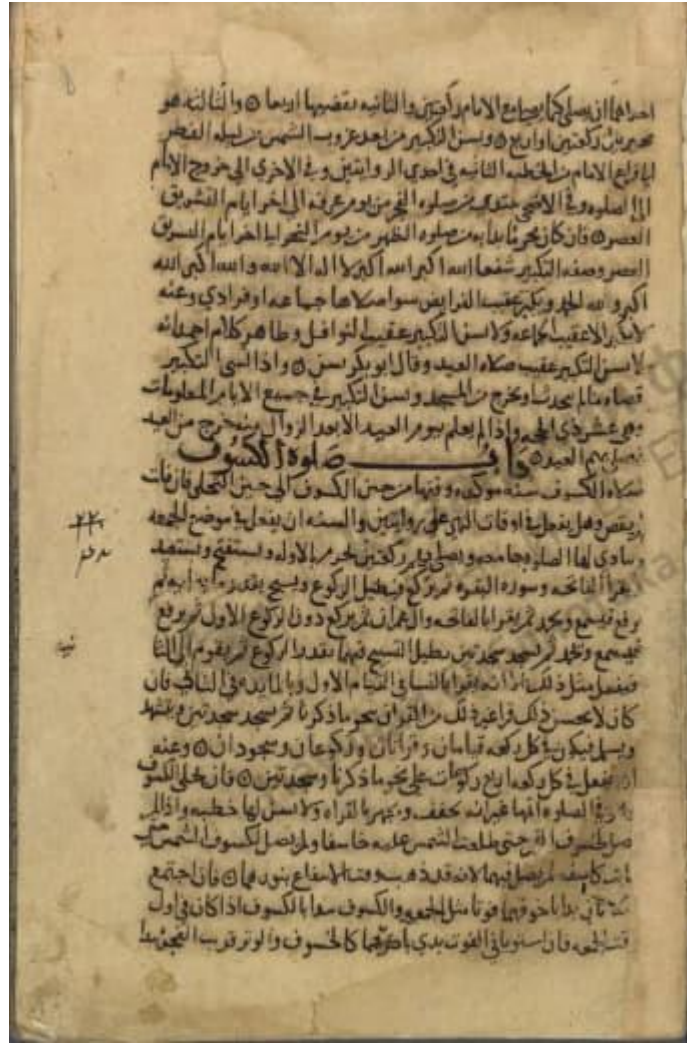 احداهما ان يصلي كما يصلي مع الامام ركعتين والثانيه يقضيها اربعا ۞ والثالثه هو
مخير بين ركعتين او اربع ۞ ويسن التكبير من بعد غروب الشمس من ليله الفطر
الي فراغ الامام من الخطبه الثانيه في احدي الروايتين وفي الاخري الي خروج الامام
الي الصلوه وفي الاضحي يبتدي من صلوه الفجر من يوم عرفه الي اخر ايام التشريق
العصر ۞ فان كان محرما بدا به من صلوه الظهر من يوم النحر الي اخر ايام التشريق
العصر وصفه التكبير شفعا الله اكبر الله اكبر لا اله الا الله والله اكبر الله
اكبر ولله الحمد ويكبر عقيب الفرايض سوا صلاها جماعه او فرادي وعنه
لا يكبر الا عقيب الجماعه ولا يسن التكبير عقيب النوافل وظاهر كلام احمد انه
لا يسن التكبير عقيب صلاه العيد وقال ابو بكر يسن ۞ واذا نسي التكبير
قضاه ما لم يحدث او يخرج من المسجد ويسن التكبير في جميع الايام المعلومات
وهي عشر ذي الحجه واذا لم يعلم بيوم العيد الا بعد الزوال خرج من الغد
فصلي بهم العيد ۞ باب صلوة الكسوف
صلاه الكسوف سنه موكده ووقتها من حين الكسوف الي حين التجلي فان فات
لم يقض وهل يفعل في اوقات النهي علي روايتين والسنه ان يفعل في موضع الجمعه
وينادي لها الصلوه جامعه ويصلي بهم ركعتين يحرم بالاوله ويستفتح ويستعيذ
ويقرا الفاتحه وسوره البقره ثم يركع فيطيل الركوع ويسبح بقدر مايه ايه ثم
يرفع فيسمع ويحمد ثم يقرا الفاتحه وال عمران ثم يركع دون الركوع الاول ثم يرفع
فيسمع ويحمد ثم يسجد سجدتين يطيل التسبيح فيهما بقدر الركوع ثم يقوم الي الثا
فيفعل مثل ذلك الا انه يقرا بالنسا في القيام الاول وبالمايده في الثاني فان
كان لا يحسن ذلك قرا غير ذلك من القران نحو ما ذكرنا ثم يسجد سجدتين ويتشهد
ويسلم فيكون في كل ركعه قيامان وقراتان وركوعان وسجودان ۞ وعنه
انه يفعل في كل ركعه اربع ركوعات علي نحو ما ذكرنا وسجدتين ۞ فان تجلي الكسوف
وهو في الصلوه اتمها غير انه يخفف ويجهر بالقراه ولا يسن لها خطبه واذا لم
يصل لخسوف القمر حتي طلعت الشمس عليه خاسفا ولم يصل لكسوف الشمس حتي
غابت كاسفه لم يصل فيهما لانه قد ذهب وقت الانتفاع بنورهما ۞ فان اجتمع
صلاتان بدا باخوفهما فوتا مثل الجمعه والكسوف بدا بالكسوف اذا كان في اول
وقت الجمعه فان استويا في الفوت بدي باكدهما كالخسوف والوتر قريب الفجر بدا